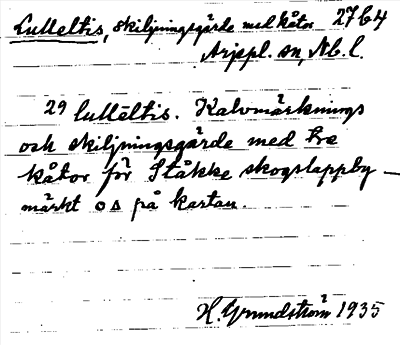 Lulleltis, skiljningsgärde med kåtor 27 b 4
Arjepl. sn, Nb. l.
29 lullēltis. Kalvmärknings
och skiljningsgärde med tre
kåtor för Ståkke skogslappby —
märkt o ▵ på kartan.
H. Grundström 1935